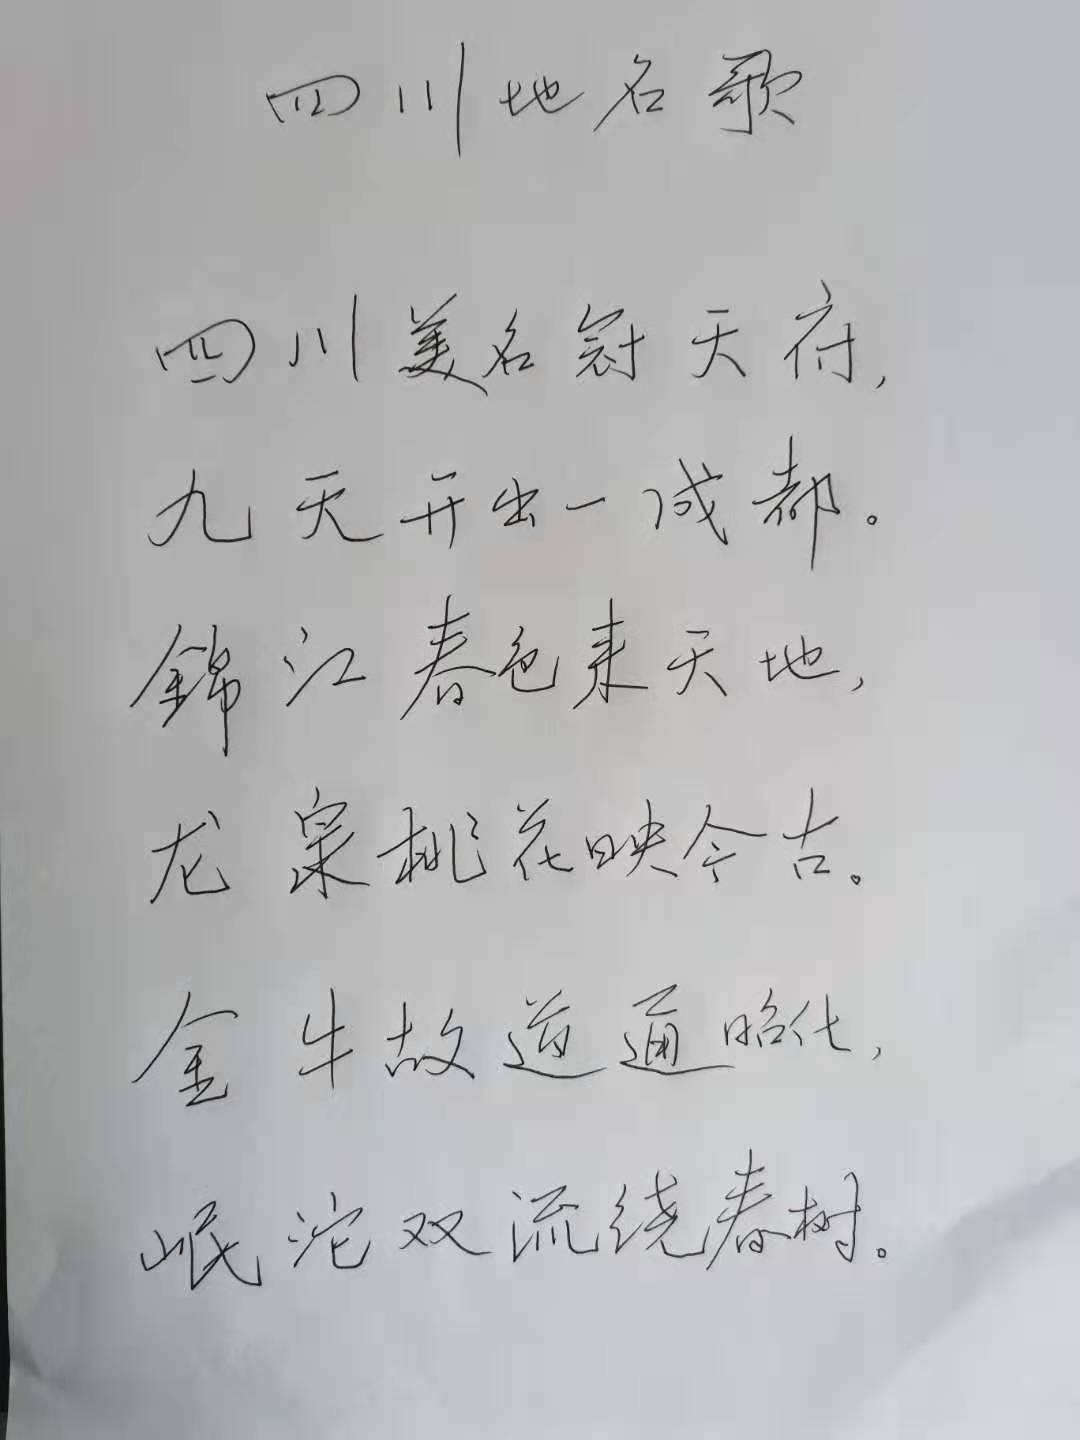 四川地名歌
四川美名冠天府,
九天开出一成都。
錦江春色来天地,
龙泉桃花映今古。
金牛故道通昭化,
岷沱双流绕春树。